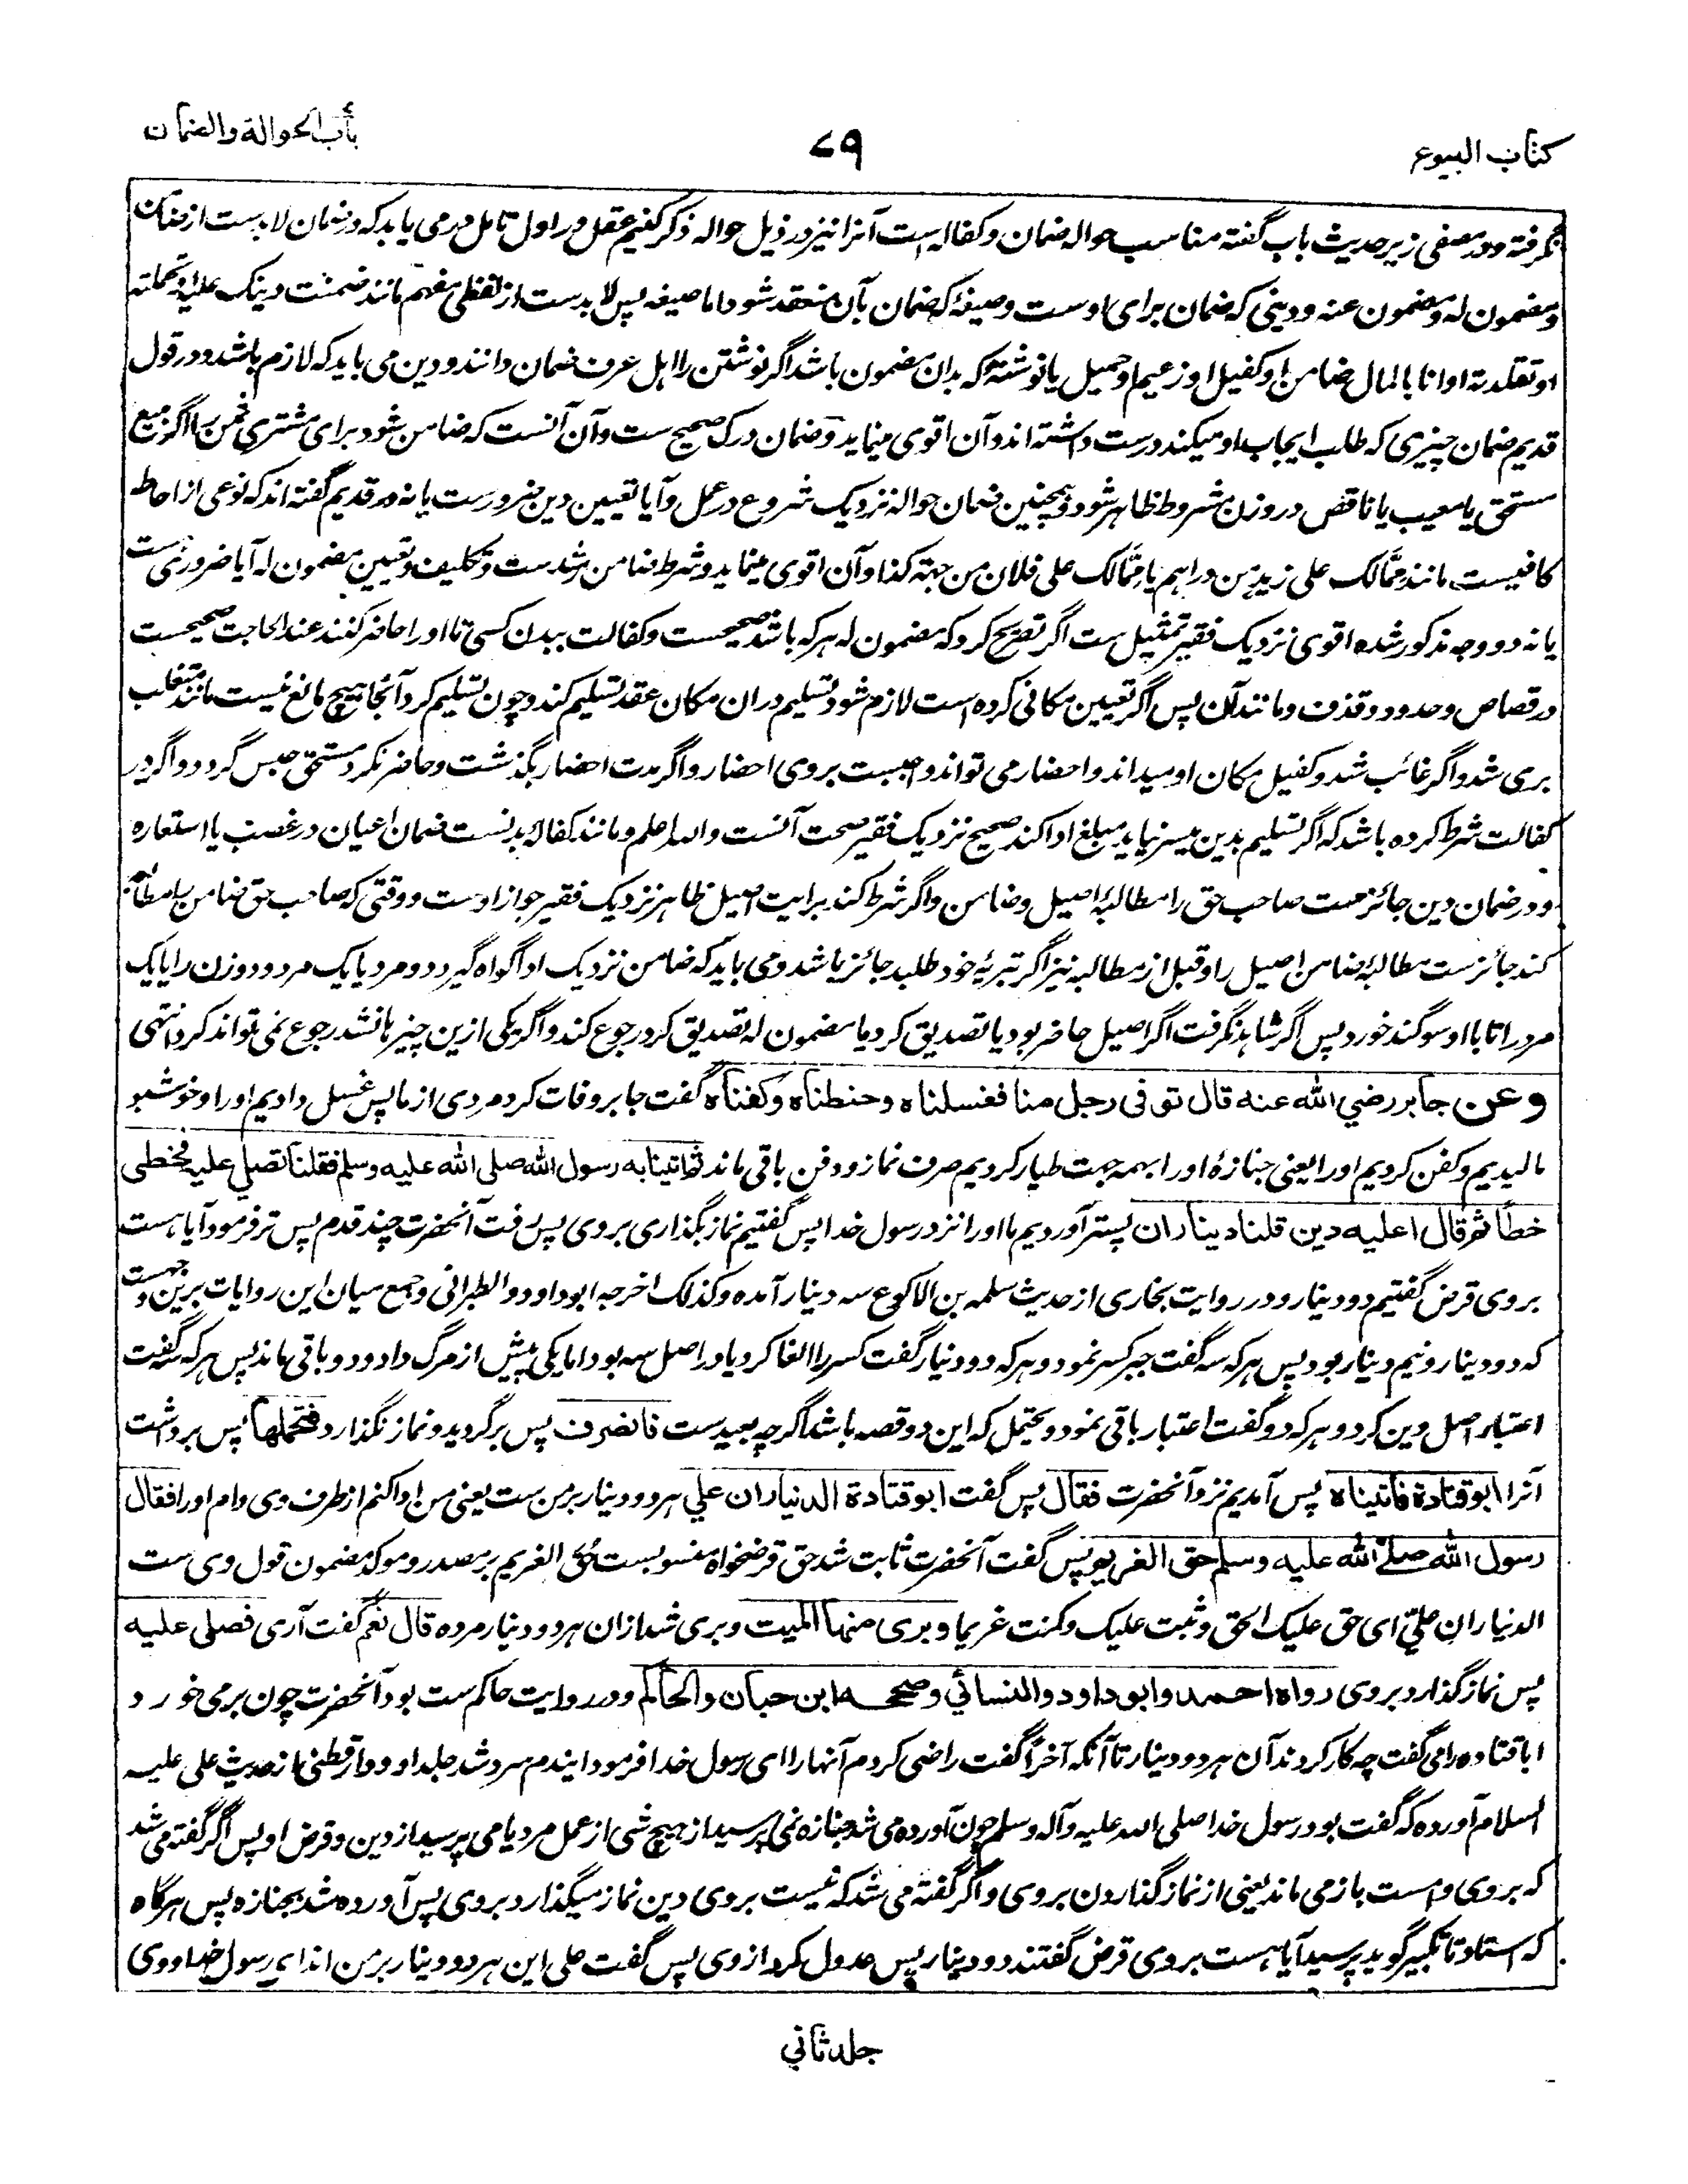 کتاب البیوع
۷۹
باب الحوالة والضمان
نگرفته و در مصفی زیر حدیث باب گفته مناسب حواله ضمان و کفاله است آنرا نیز در ذیل حواله ذکر کنیم عقل در اول تامل در می یابد که در ضمان لابد ست از ضامن
و مضمون له و مضمون عنه و دینی که ضمان برای اوست و صیغهٔ که ضمان بآن منعقد شود اما صیغه پس لابد ست از لفظی مفهم مانند ضمنت دینک علیه او تحملته
او تقلدته او انا بالمال ضامن او کفیل او زعیم او حمیل یا نوشتهٔ که بدان مضمون باشد اگر نوشتن را اهل عرف ضمان دانند و دین می باید که لازم باشد و در قول
قدیم ضمان چیزی که طلب ایجاب او میکند درست داشته اند و آن اقوی مینماید و ضمان درک صحیح ست و آن آنست که ضامن شود برای مشتری ثمن را اگر مبیع
مستحق یا معیب یا ناقص در وزن مشروط ظاهر شود و همچنین ضمان حواله نزدیک شروع در عمل و آیا تعیین دین ضرورست یا نه در قدیم گفته اند که نوعی از احاطه
کافیست مانند ممّالک علی زید من دراهم یا ممّالک علی فلان من جهته کذا و آن اقوی مینماید و شرط ضامن رشد ست و تکلیف و تعیین مضمون له آیا ضروریست
یا نه دو وجه مذکور شده اقوی نزدیک فقیر تمثیل ست اگر تصریح کرد که مضمون له هر که باشد صحیحست و کفالت ببدن کسی تا او را حاضر کنند عند الحاجت صحیحست
در قصاص و حدود و قذف و مانند آن پس اگر تعیین مکانی کرده است لازم شود تسلیم در ان مکان عقد تسلیم کند و چون تسلیم کرد آنجا هیچ مانع نیست مانند متغلب
بری شد و اگر غائب شد و کفیل مکان او میداند و احضار می تواند واجبست بروی احضار و اگر مدت احضار بگذشت و حاضر نکرد مستحق حبس گردد و اگر در
کفالت شرط کرده باشد که اگر تسلیم بدین میسر نیاید مبلغ ادا کند صحیح نزدیک فقیر صحت آنست والله اعلم و مانند کفاله بدنست ضمان اعیان در غصب یا استعاره
و در ضمان دین جائز ست صاحب حق را مطالبهٔ اصیل و ضامن و اگر شرط کند برایت اصیل ظاهر نزدیک فقیر جواز اوست و وقتی که صاحب حق ضامن را مطالبه
کند جائز ست مطالبهٔ ضامن اصیل را و قبل از مطالبه نیز اگر تبریهٔ خود طلبد جائز باشد و می باید که ضامن نزدیک ادا گواه گیرد دو مرد یا یک مرد و دو زن را یا یک
مرد را تا با او سوگند خورد پس اگر شاهد نگرفت اگر اصیل حاضر بود یا تصدیق کرد یا مضمون له تصدیق کرد رجوع کند و اگر یکی ازین چیزها نشد رجوع نمی تواند کرد انتهی
وعن جابر رضي الله عنه قال توفی رجل منا فغسلناه وحنطناه وكفناه گفت جابر وفات کرد مردی از ما پس غسل دادیم او را و خوشبو
مالیدیم و کفن کردیم او را یعنی جنازهٔ او را بهمه جهت طیار کردیم صرف نماز و دفن باقی ماند ثم اتینا به رسول الله صلی الله علیه وسلم فقلنا تصلي علیه فخطی
خطأ ثم قال اعلیه دین قلنا دیناران پستر آوردیم ما او را نزد رسول خدا پس گفتیم نماز بگذاری بروی پس رفت آنحضرت چند قدم پس تر فرمود آیا هست
بروی قرض گفتیم دو دینار و در روایت بخاری از حدیث سلمه بن الاکوع سه دینار آمده و کذلک اخرجه ابو داود و الطبرانی و جمع میان این روایات برین وجهست
که دو دینار و نیم دینار بود پس هر که سه گفت جبر کسر نمود و هر که دو دینار گفت کسر را الغا کرد یا در اصل سه بود اما یکی پیش از مرگ داد و دو باقی ماند پس هر که سه گفت
اعتبار اصل دین کرد و هر که دو گفت اعتبار باقی نمود و یحتمل که این دو قصه باشد اگرچه بعید ست فانصرف پس برگردید و نماز نگذارد فتحملها پس برداشت
آنرا ابو قتادة فاتیناه پس آمدیم نزد آنحضرت فقال پس گفت ابو قتادة الدیناران علي هر دو دینار بر من ست یعنی من ادا کنم از طرف وی وام او را فقال
رسول الله صلی الله علیه وسلم حق الغریم پس گفت آنحضرت ثابت شد حق قرضخواه منسوبست حُق الغریم بر مصدر و موکد مضمون قول وی ست
الدنیاران علیّ ای حق علیک الحق و ثبت علیک و کنت غریما وبری منهما المیت و بری شد ازان هر دو دینار مرده قال نعم گفت آری فصلی علیه
پس نماز گذارد بروی رواه احمد وابو داود والنسائي وصححه ابن حبان والحاکم و در روایت حاکم ست بود آنحضرت چون بر می خورد
ابا قتاده را می گفت چه کار کردند آن هر دو دینار تا آنکه آخراً گفت راضی کردم آنها را ای رسول خدا فرمود ایندم سرد شد جلد او و دارقطنی از حدیث علی علیه
السلام آورده که گفت بود رسول خدا صلی الله علیه وآله وسلم چون آورده می شد جنازه نمی پرسید از هیچ شی از عمل مرد یا می پرسید از دین و قرض او پس اگر گفته می شد
که بروی وام ست باز می ماند یعنی از نماز گذاردن بروی و اگر گفته می شد که نیست بروی دین نماز میگذارد بروی پس آورده شد بجنازه پس هرگاه
که استاد تا تکبیر گوید پرسید آیا هست بروی قرض گفتند دو دینار پس عدول کرد از وی پس گفت علی این هر دو دینار بر من اند ای رسول خدا و وی
جلد ثاني